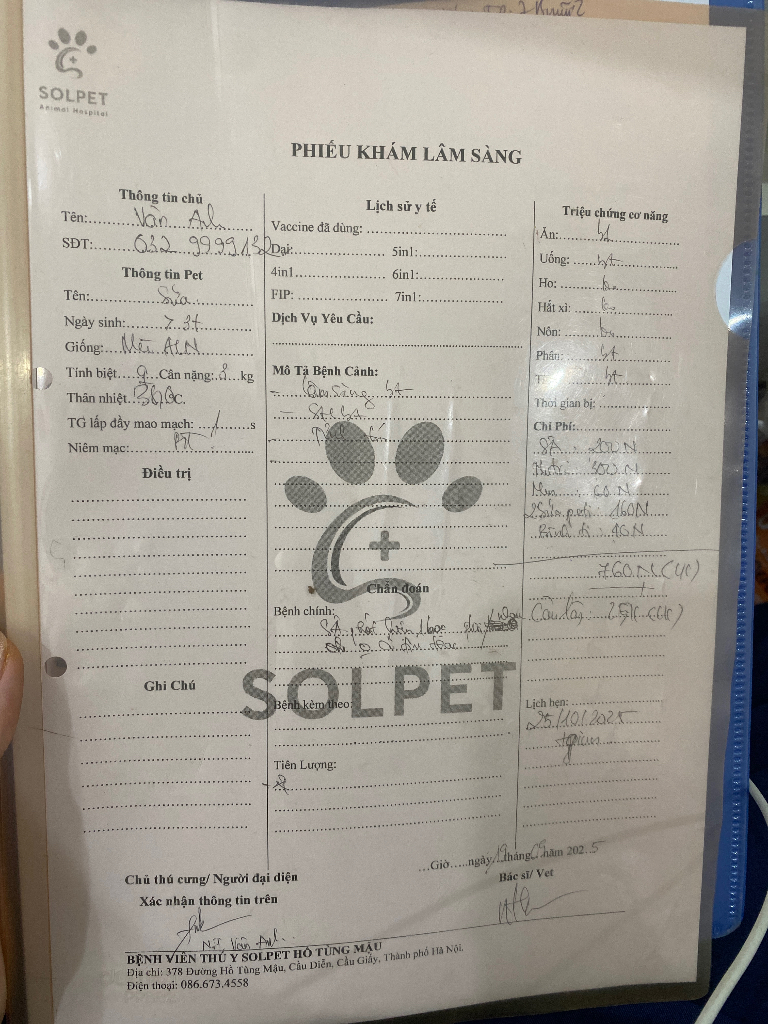 SOLPET
Animal Hospital
PHIẾU KHÁM LÂM SÀNG
Thông tin chủ
Tên: Vân Anh
SĐT: 032 9999132
Thông tin Pet
Tên: Sữa
Ngày sinh: 7.3t
Giống: Mèo ALN
Tính biệt ♀ Cân nặng: kg
Thân nhiệt °c.
TG lấp đầy mao mạch: 1 s
Niêm mạc:
Điều trị
Ghi Chú
Lịch sử y tế
Vaccine đã dùng:
Dại: 5in1:
4in1 6in1:
FIP: 7in1:
Dịch Vụ Yêu Cầu:
Mô Tả Bệnh Cảnh:
- Lâm sàng bt
Chẩn đoán
Bệnh chính:
SA
SOLPET
Bệnh kèm theo:
Tiên Lượng:
Triệu chứng cơ năng
Ăn: bt
Uống: bt
Ho: k
Hắt xì: k
Nôn: k
Phân: bt
bt
Thời gian bị:
Chi Phí:
SA : 200N
300N
60N
2 Sữa : 160N
: 40N
760N (CK)
25K (CK)
Lịch hẹn:
25/10/2025
...Giờ.....ngày 19 tháng 09 năm 2025
Chủ thú cưng/ Người đại diện
Xác nhận thông tin trên
Bác sĩ/ Vet
Vân Anh
BỆNH VIỆN THÚ Y SOLPET HỒ TÙNG MẬU
Địa chỉ: 378 Đường Hồ Tùng Mậu, Cầu Diễn, Cầu Giấy, Thành phố Hà Nội.
Điện thoại: 086.673.4558